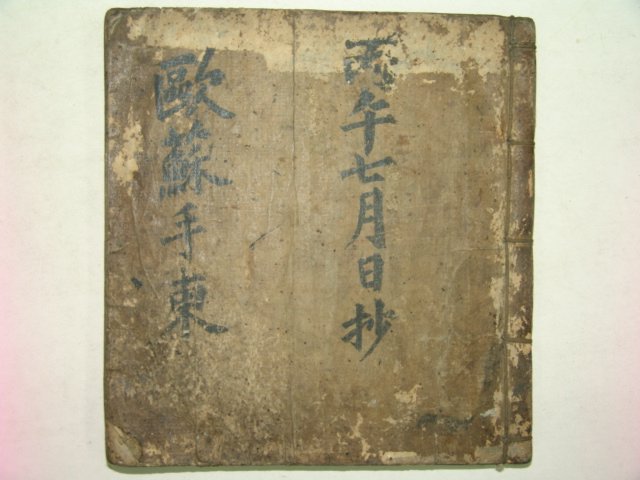 丙午七月日抄
歐蘇手柬